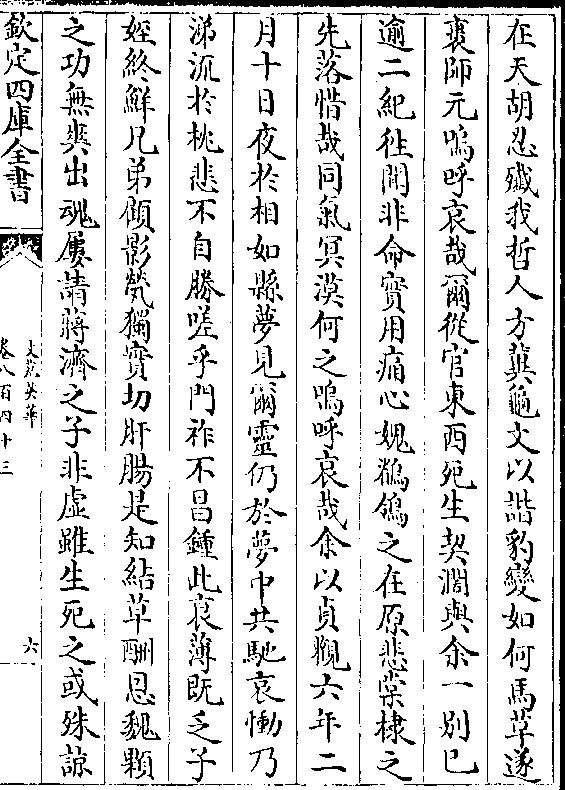 在天胡忍殲我哲人方冀龜文以諧豹變如何馬草遂
裹師元嗚呼哀哉爾從官東西死生契濶與余一別已
逾二紀徃聞非命實用痛心媿鶺鴒之在原悲棠棣之
先落惜哉同氣冥漠何之嗚呼哀哉余以貞觀六年二
月十日夜於相如縣夢見爾靈仍於夢中共馳哀慟乃
涕流於枕悲不自勝嗟乎門祚不昌鍾此哀薄既乏子
姪終鮮兄弟顧影煢獨實切肝腸是知結草酬恩魏顆
之功無爽出魂屢請蔣濟之子非虛雖生死之或殊諒
欽定四庫全書
文苑英華
卷八百四十三
六